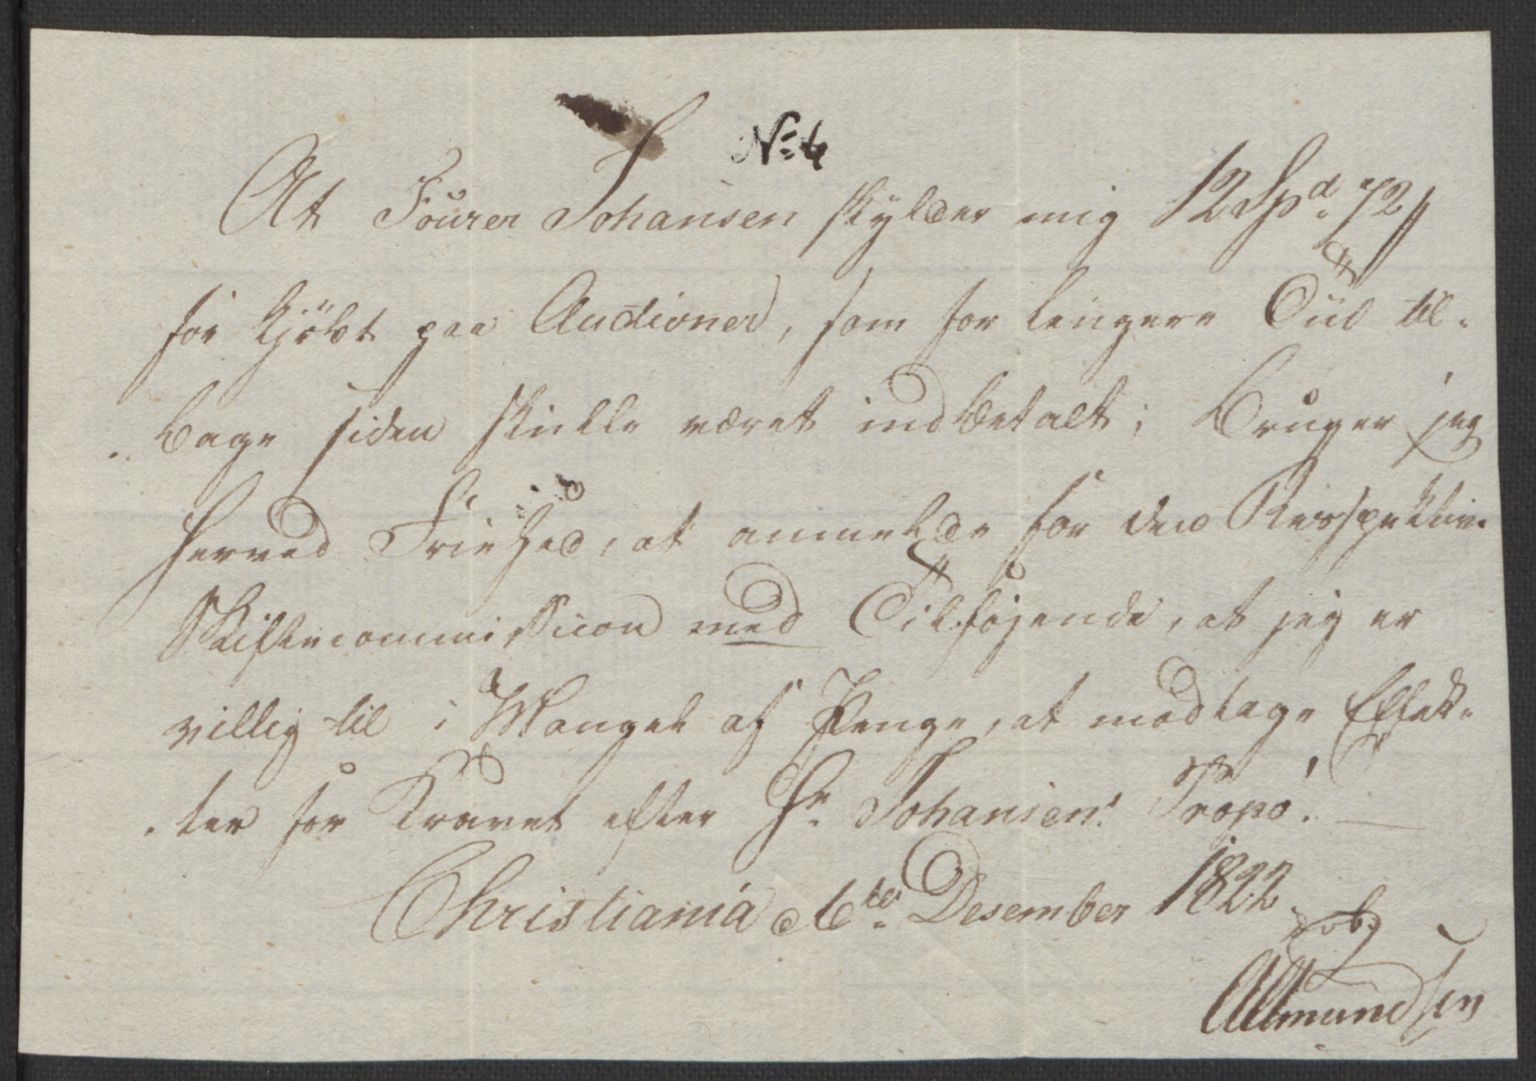 No 6
At Fourer Johansen skylder mig 12 Spd. 72 ß
for kjöbt paa Auctioner, som for længere Tiid til-
bage siden skulle været indbetalt; bruger jeg
herved Friehed, at anmelde for den Respektive
Skiftecommission med Tilföjende, at jeg er
villig til i Mangel af Penge, at modtage Effek-
ter for Kravet efter Hr. Johansens
Christiania den Desember 1822.
Amundsen